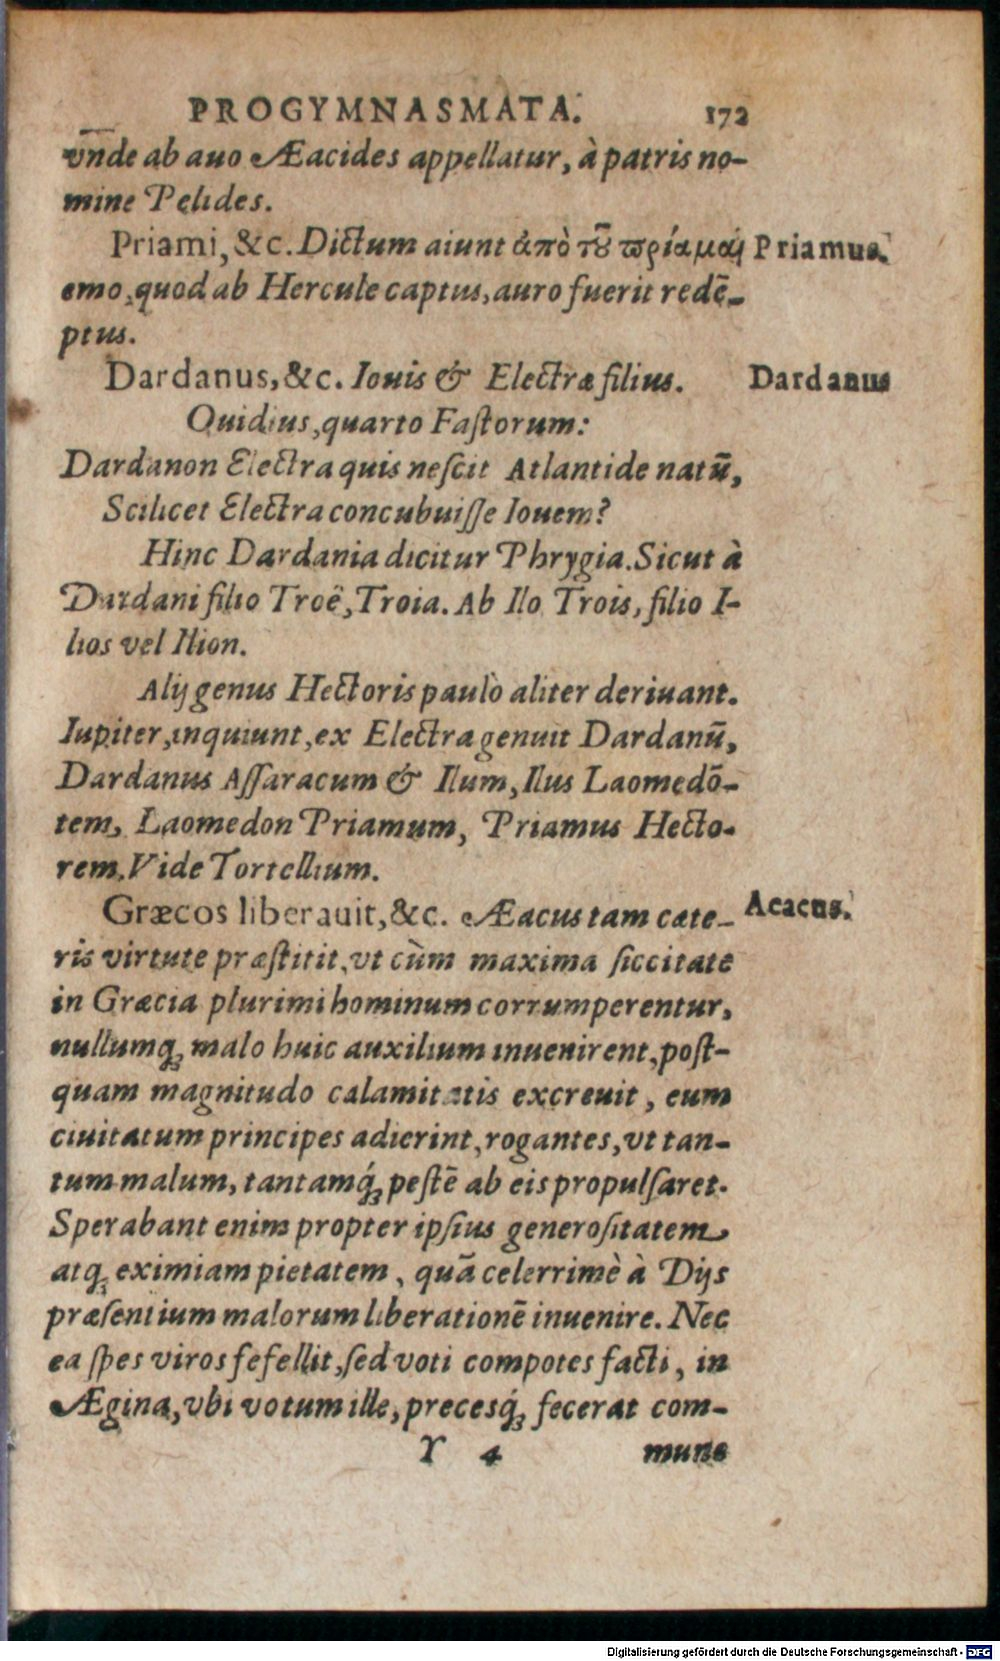 PROGYMNASMATA. 172
vnde ab auo Æacides appellatur, à patris no-
mine Pelides.
Priami, &c. Dictum aiunt ἀπὸ τȣ͂ πρίαμαι Priamus.
emo, quod ab Hercule captus, auro fuerit redē-
ptus.
Dardanus, &c. Iouis & Electræ filius. Dardanus
Ouidius, quarto Faſtorum:
Dardanon Electra quis neſcit Atlantide natū,
Scilicet Electra concubuiſſe Iouem?
Hinc Dardania dicitur Phrygia. Sicut à
Dardani filio Troë, Troia. Ab Ilo Trois, filio I-
lios vel Ilion.
Alij genus Hectoris paulò aliter deriuant.
Iupiter, inquiunt, ex Electra genuit Dardanū,
Dardanus Aſſaracum & Ilum, Ilus Laomedō-
tem, Laomedon Priamum, Priamus Hecto-
rem. Vide Tortellium.
Græcos liberauit, &c. Æacus tam cæte- Aeacus.
ris virtute præſtitit, vt cùm maxima ſiccitate
in Græcia plurimi hominum corrumperentur,
nullumq; malo huic auxilium inuenirent, poſt-
quam magnitudo calamitatis excreuit, eum
ciuitatum principes adierint, rogantes, vt tan-
tum malum, tantamq́; peſtē ab eis propulſaret.
Sperabant enim propter ipſius generoſitatem
atq; eximiam pietatem, quā celerrimè à Dijs
præſentium malorum liberationē inuenire. Nec
ea ſpes viros fefellit, ſed voti compotes facti, in
Ægina, vbi votum ille, precesq́; fecerat com-
Y 4 mune
Digitalisierung gefördert durch die Deutsche Forschungsgemeinschaft - DFG